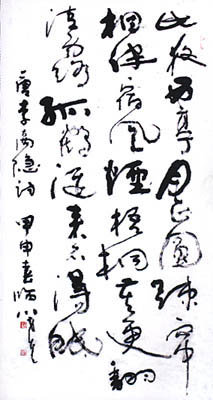 此夜西亭月正圓疎帘
相伴宿風煙梧桐莫更翻
清露孤鶴從來不得眠
唐李商隱詩 甲申春